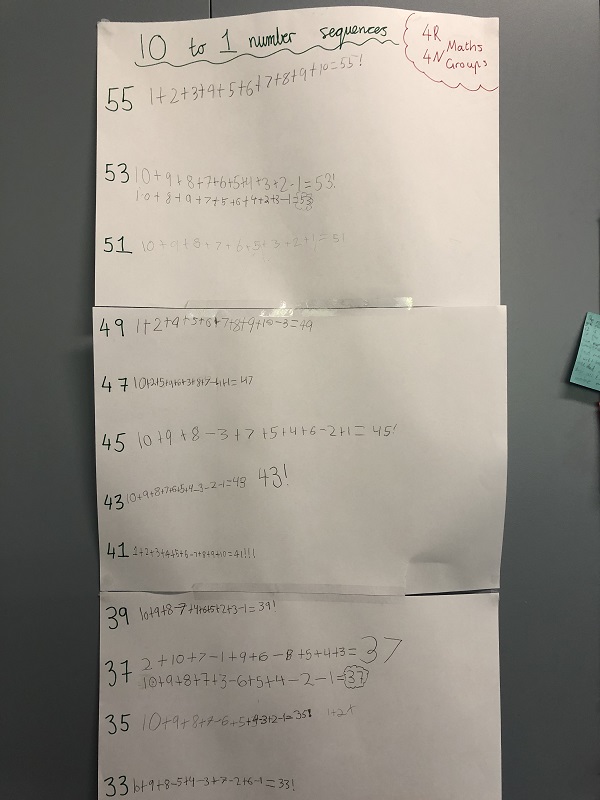 10 to 1 number sequences
4R
4N Maths Groups
55 1+2+3+4+5+6+7+8+9+10=55!
53 10+9+8+7+6+5+4+3+2-1=53!
10+8+9+7+5+6+4+2+3-1=53
51
49 1+2+4+5+6+7+8+9+10-3=49
47
45 10+9+8-3+7+5+4+6-2+1=45!
43 10+9+8+7+6+5+4-3-2-1=43 43!
41 1+2+3+4+5+6-7+8+9+10=41!!!
39 10+9+8-7+4+6+5+2+3-1=39!
37 2+10+7-1+9+6-8+5+4+3=37
10+9+8+7+3-6+5+4-2-1=37
35 1+2+
33 10+9+8-5+4-3+7-2+6-1=33!